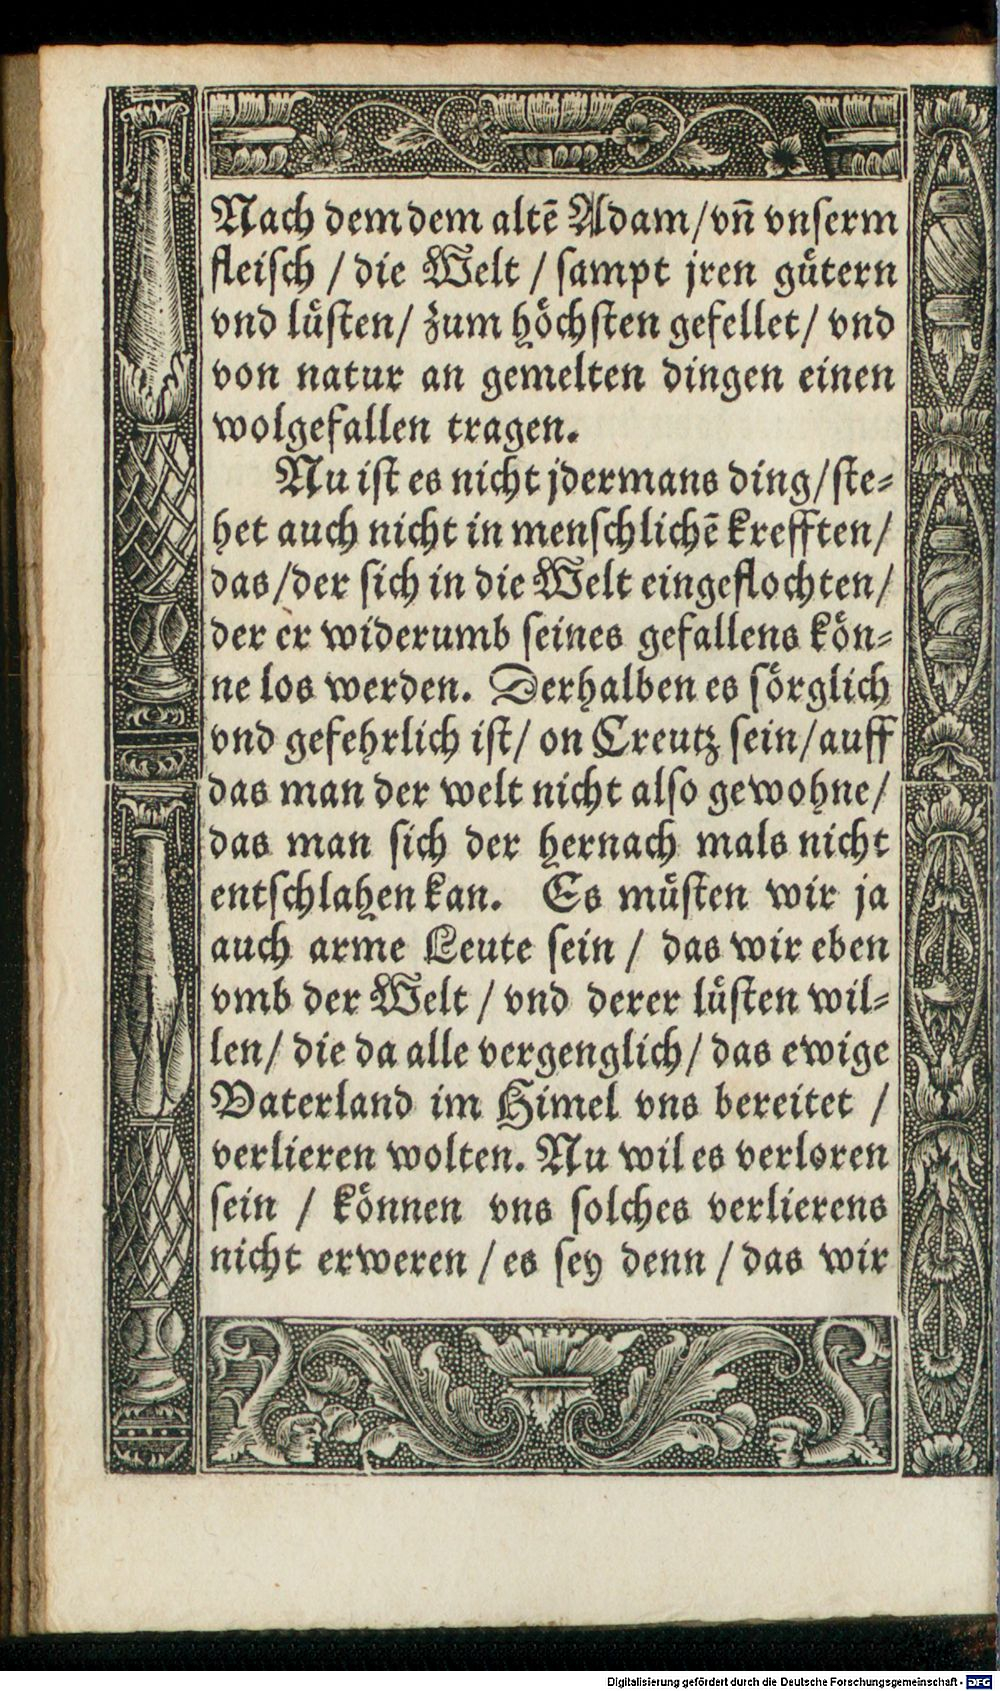 Nach dem dem altē Adam/vn̄ vnserm
fleisch / die Welt / sampt jren gütern
vnd lüsten/ zum höchsten gefellet/ vnd
von natur an gemelten dingen einen
wolgefallen tragen.
Nu ist es nicht jdermans ding/ste-
het auch nicht in menschlichē krefften/
das/der sich in die Welt eingeflochten/
der er widerumb seines gefallens kön-
ne los werden. Derhalben es sörglich
vnd gefehrlich ist/ on Creutz sein/auff
das man der welt nicht also gewohne/
das man sich der hernach mals nicht
entschlahen kan. Es müsten wir ja
auch arme Leute sein / das wir eben
vmb der Welt / vnd derer lüsten wil-
len/ die da alle vergenglich/ das ewige
Vaterland im Himel vns bereitet /
verlieren wolten. Nu wil es verloren
sein / können vns solches verlierens
nicht erweren / es sey denn / das wir
Digitalisierung gefördert durch die Deutsche Forschungsgemeinschaft - DFG